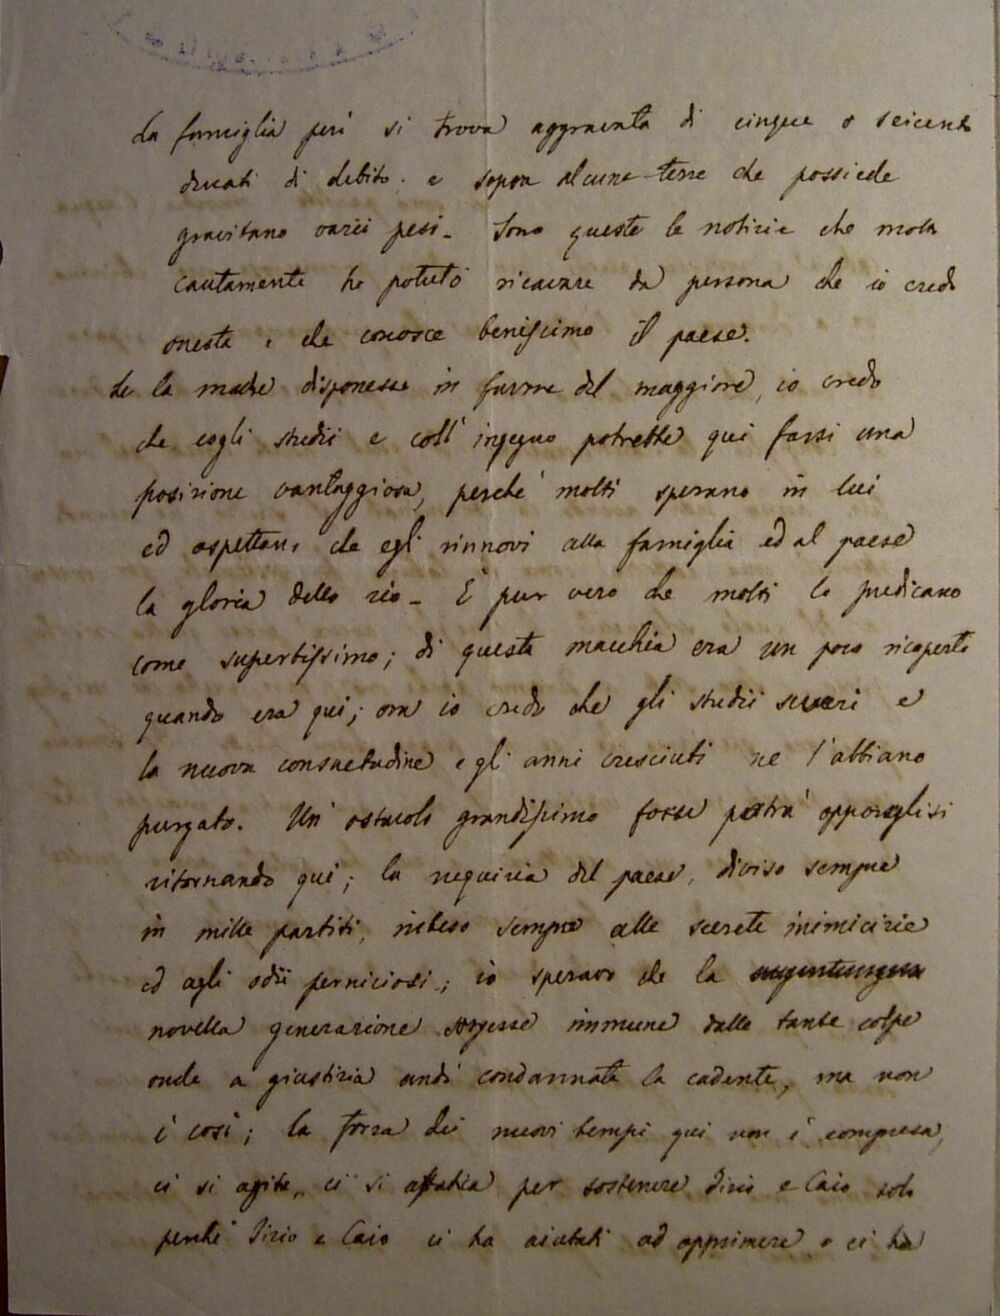 La famiglia però si trova aggravata di cinque o seicento
ducati di debito; e sopra alcune terre che possiede
gravitano varii pesi. Sono queste le notizie che molto
cautamente ho potuto ricavare da persona che io credo
onesta, e che conosce benissimo il paese.
Se la madre disponesse in favore del maggiore, io credo
che cogli studii e coll'ingegno potrebbe qui farsi una
posizione vantaggiosa, perché molti sperano in lui
ed aspettano che egli rinnovi alla famiglia ed al paese
la gloria dello zio. È pur vero che molti lo predicano
come superbissimo; di questa macchia era un poco ricoperto
quando era qui; ora io credo che gli studii severi e
la nuova consuetudine e gli anni cresciuti ne l'abbiano
purgato. Un ostacolo grandissimo forse potrà opporeglisi
ritornando qui; la nequizia del paese, diviso sempre
in mille partiti, inteso sempre alle secrete inimicizie
ed agli odii perniciosi; io speravo che la
novella generazione sorgesse immune dalle tante colpe
onde a giustizia andò condannata la cadente, ma non
è così; la forza dei nuovi tempi qui non è compresa,
ci si agita, ci si affatica per sostenere Tizio e Caio solo
perché Tizio e Caio ci ha aiutati ad opprimere o ci ha